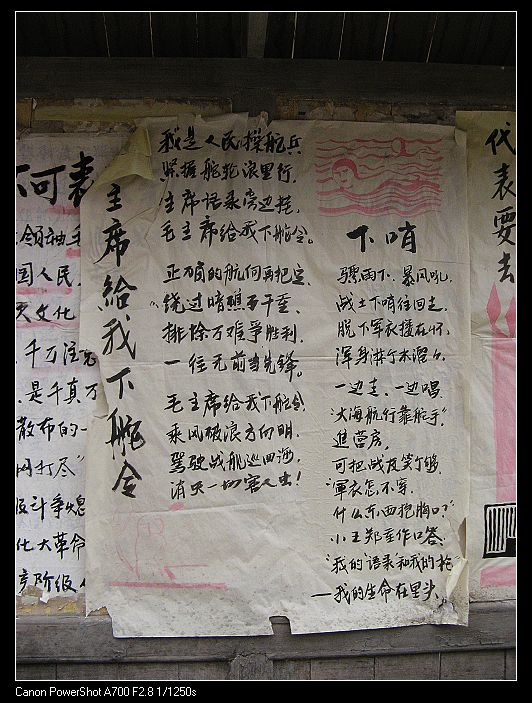 可表
领袖
国人民,
文化
千万注
是千真万
散布的一
网打尽”
级斗争熄
化大革命
产阶级
主席給我下舵令
我是人民操舵兵
紧握舵轮浪里行,
主席语录旁边挂,
毛主席给我下舵令。
正确的航向再把定,
绕过暗礁千重,
排除万难争胜利,
一往无前当先锋。
毛主席给我下舵令,
乘风破浪方向明,
驾驶战舰巡四海,
消灭一切害人虫!
下哨
骤雨下、暴风吼,
战士下哨往回走,
脱下军衣搂在怀,
浑身淋得水溜溜。
一边走、一边唱
“大海航行靠舵手”,
進营房,
可把战友笑个够
“军衣怎不穿,
什么东西抱胸口?”
小王郑重作口答:
“我的‘语录’和我的枪”
—我的生命在里头。
代表要去
Canon PowerShot A700 F2.8 1/1250s